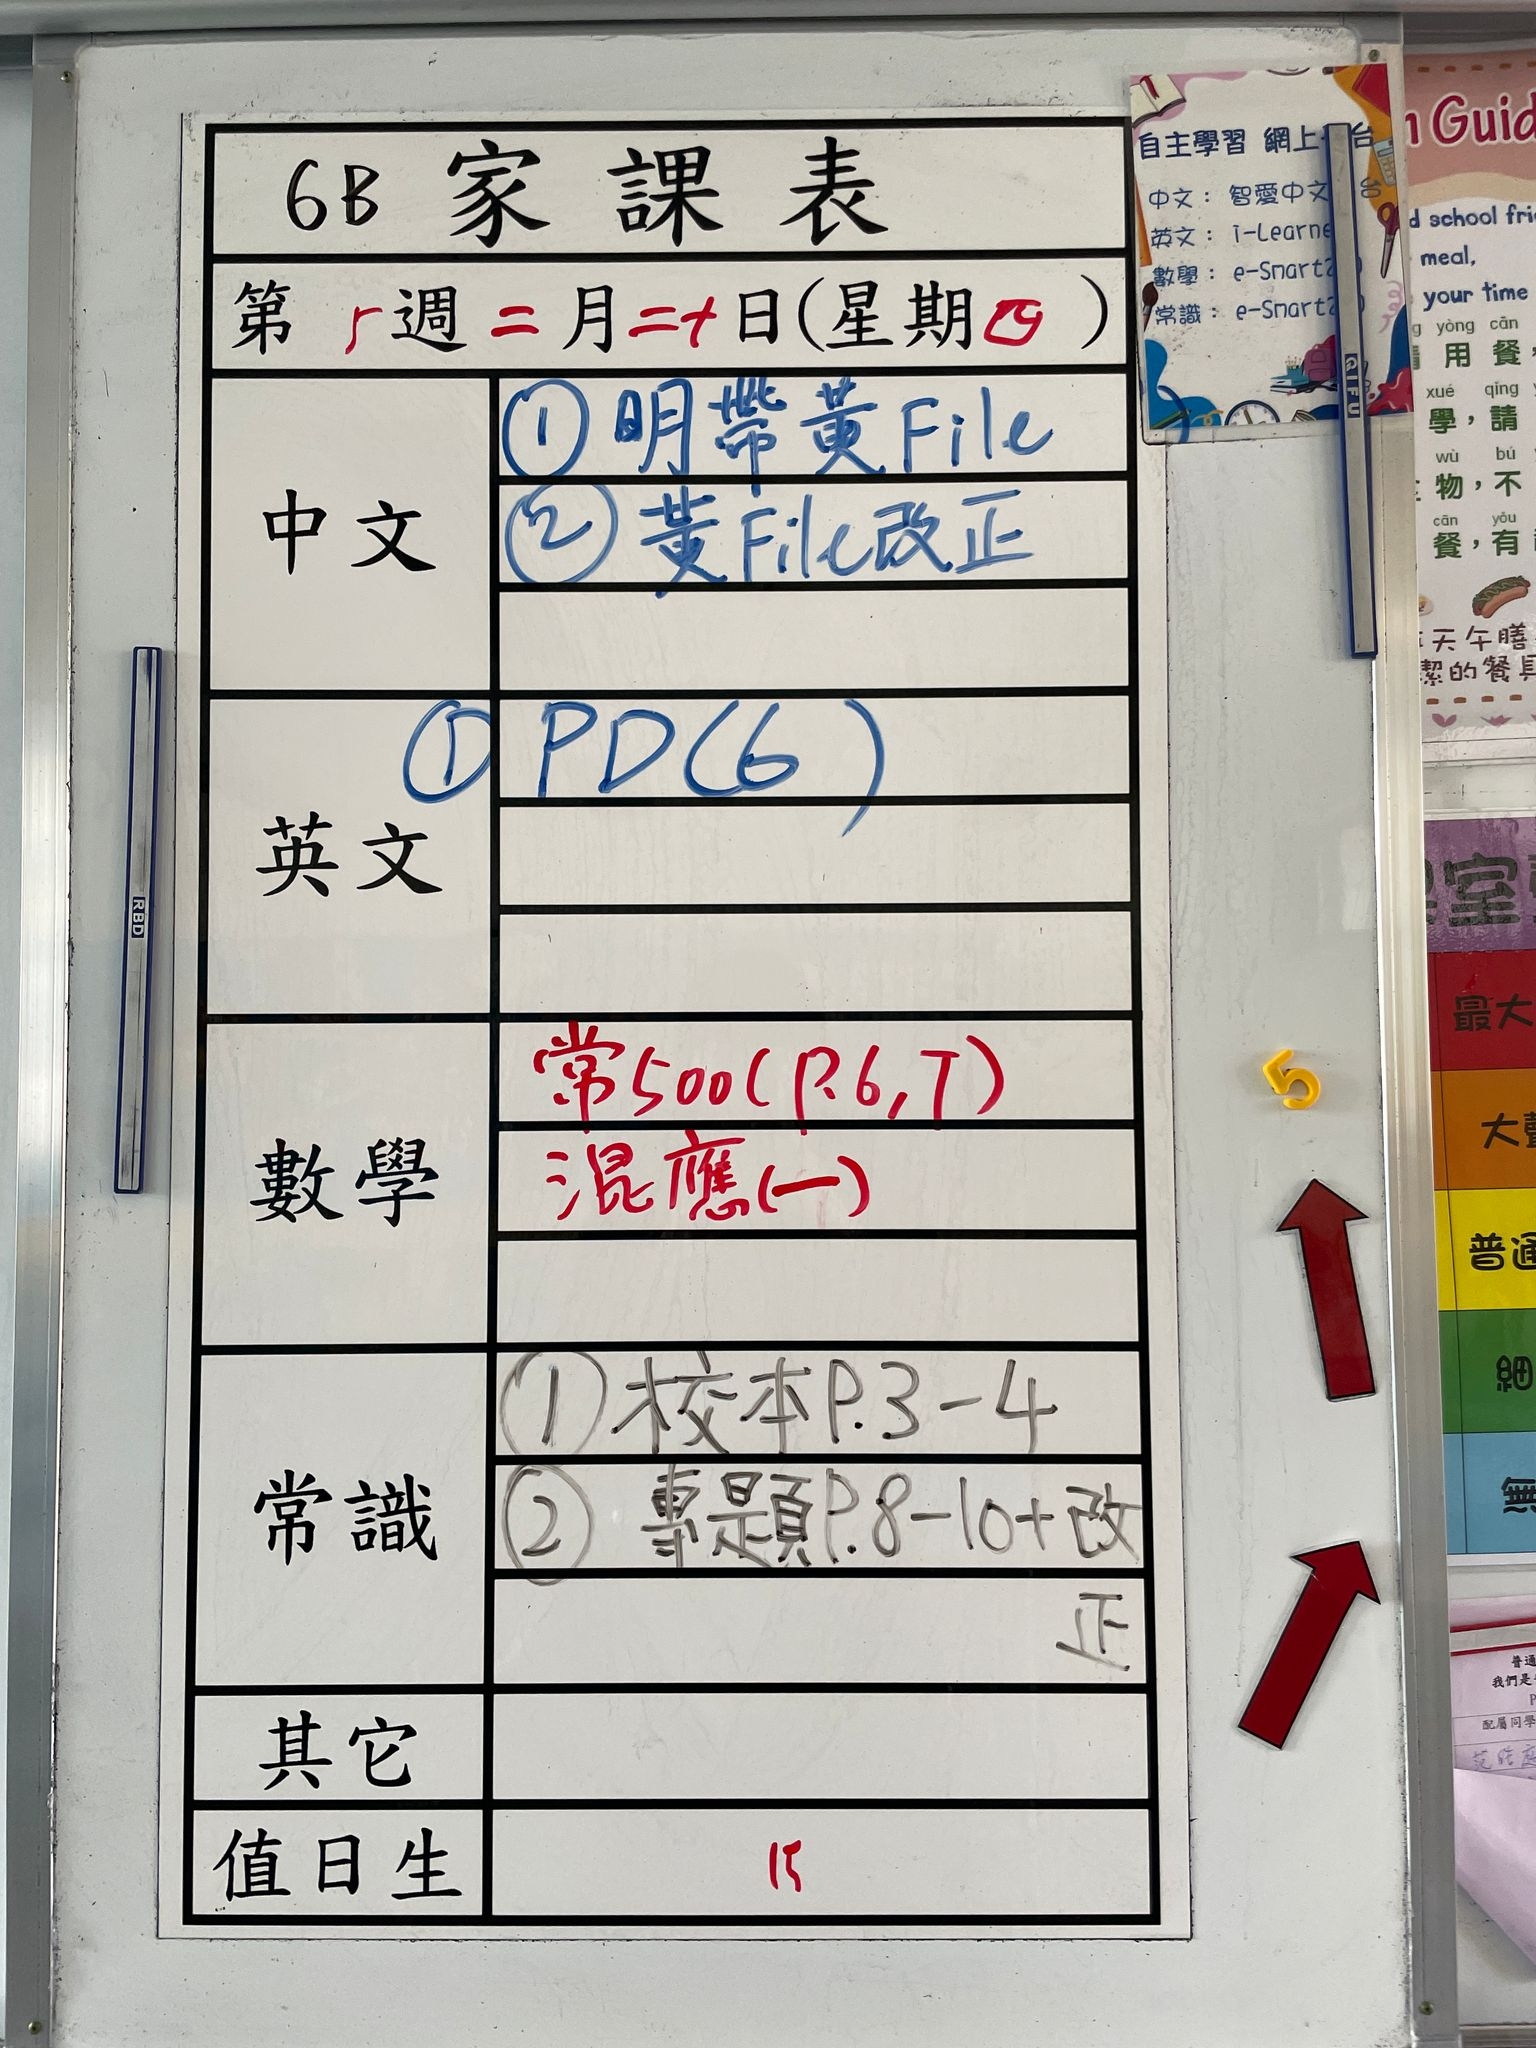 6B 家課表
第5週二月二十日(星期四)
中文
①明帶黃File
②黃File改正
英文
①PD(6)
數學
常500(P.6,7)
混應(一)
常識
①校本P.3-4
②專題P.8-10+改
正
其它
值日生
15
自主學習 網上
台
中文：智愛中文
台
英文：i-Learne
數學：e-Smart
常識：e-Smart
QIFU
RBD
5
Guid
school frie
meal,
your time
yòng cān
用餐，
xué qǐng
學，請
wù bú
物，不
cān yǒu
餐，有
天午膳
潔的餐具
室
最大
大
普通
細
無
普通
我們是
配屬同學